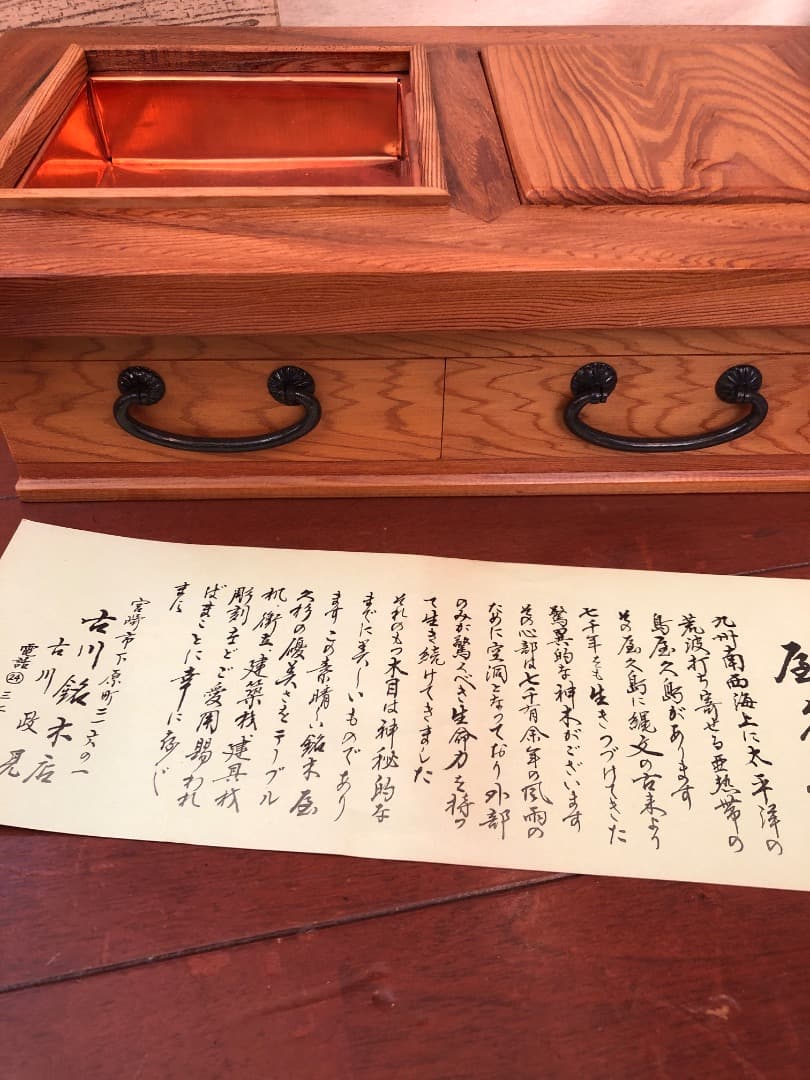 屋
九州南西海上に太平洋の
荒波打ち寄せる亜熱帯の
島屋久島があります
その屋久島に縄文の古来より
七千年をも生きつづけてきた
驚異的な神木がございます
その心部は七千有余年の風雨の
ために空洞となっており外部
のみが驚くべき生命力を持つ
て生き続けてきました
それのもつ木目は神秘的な
までに美しいものであり
ます この素晴しい銘木 屋
久杉の優美さをテーブル
机、衝立 建築材 建具材
彫刻などご愛用賜われ
ばまことに幸に存じ
ます
宮崎市下原町三六の一
古川銘木店
古川政晃
電話24三